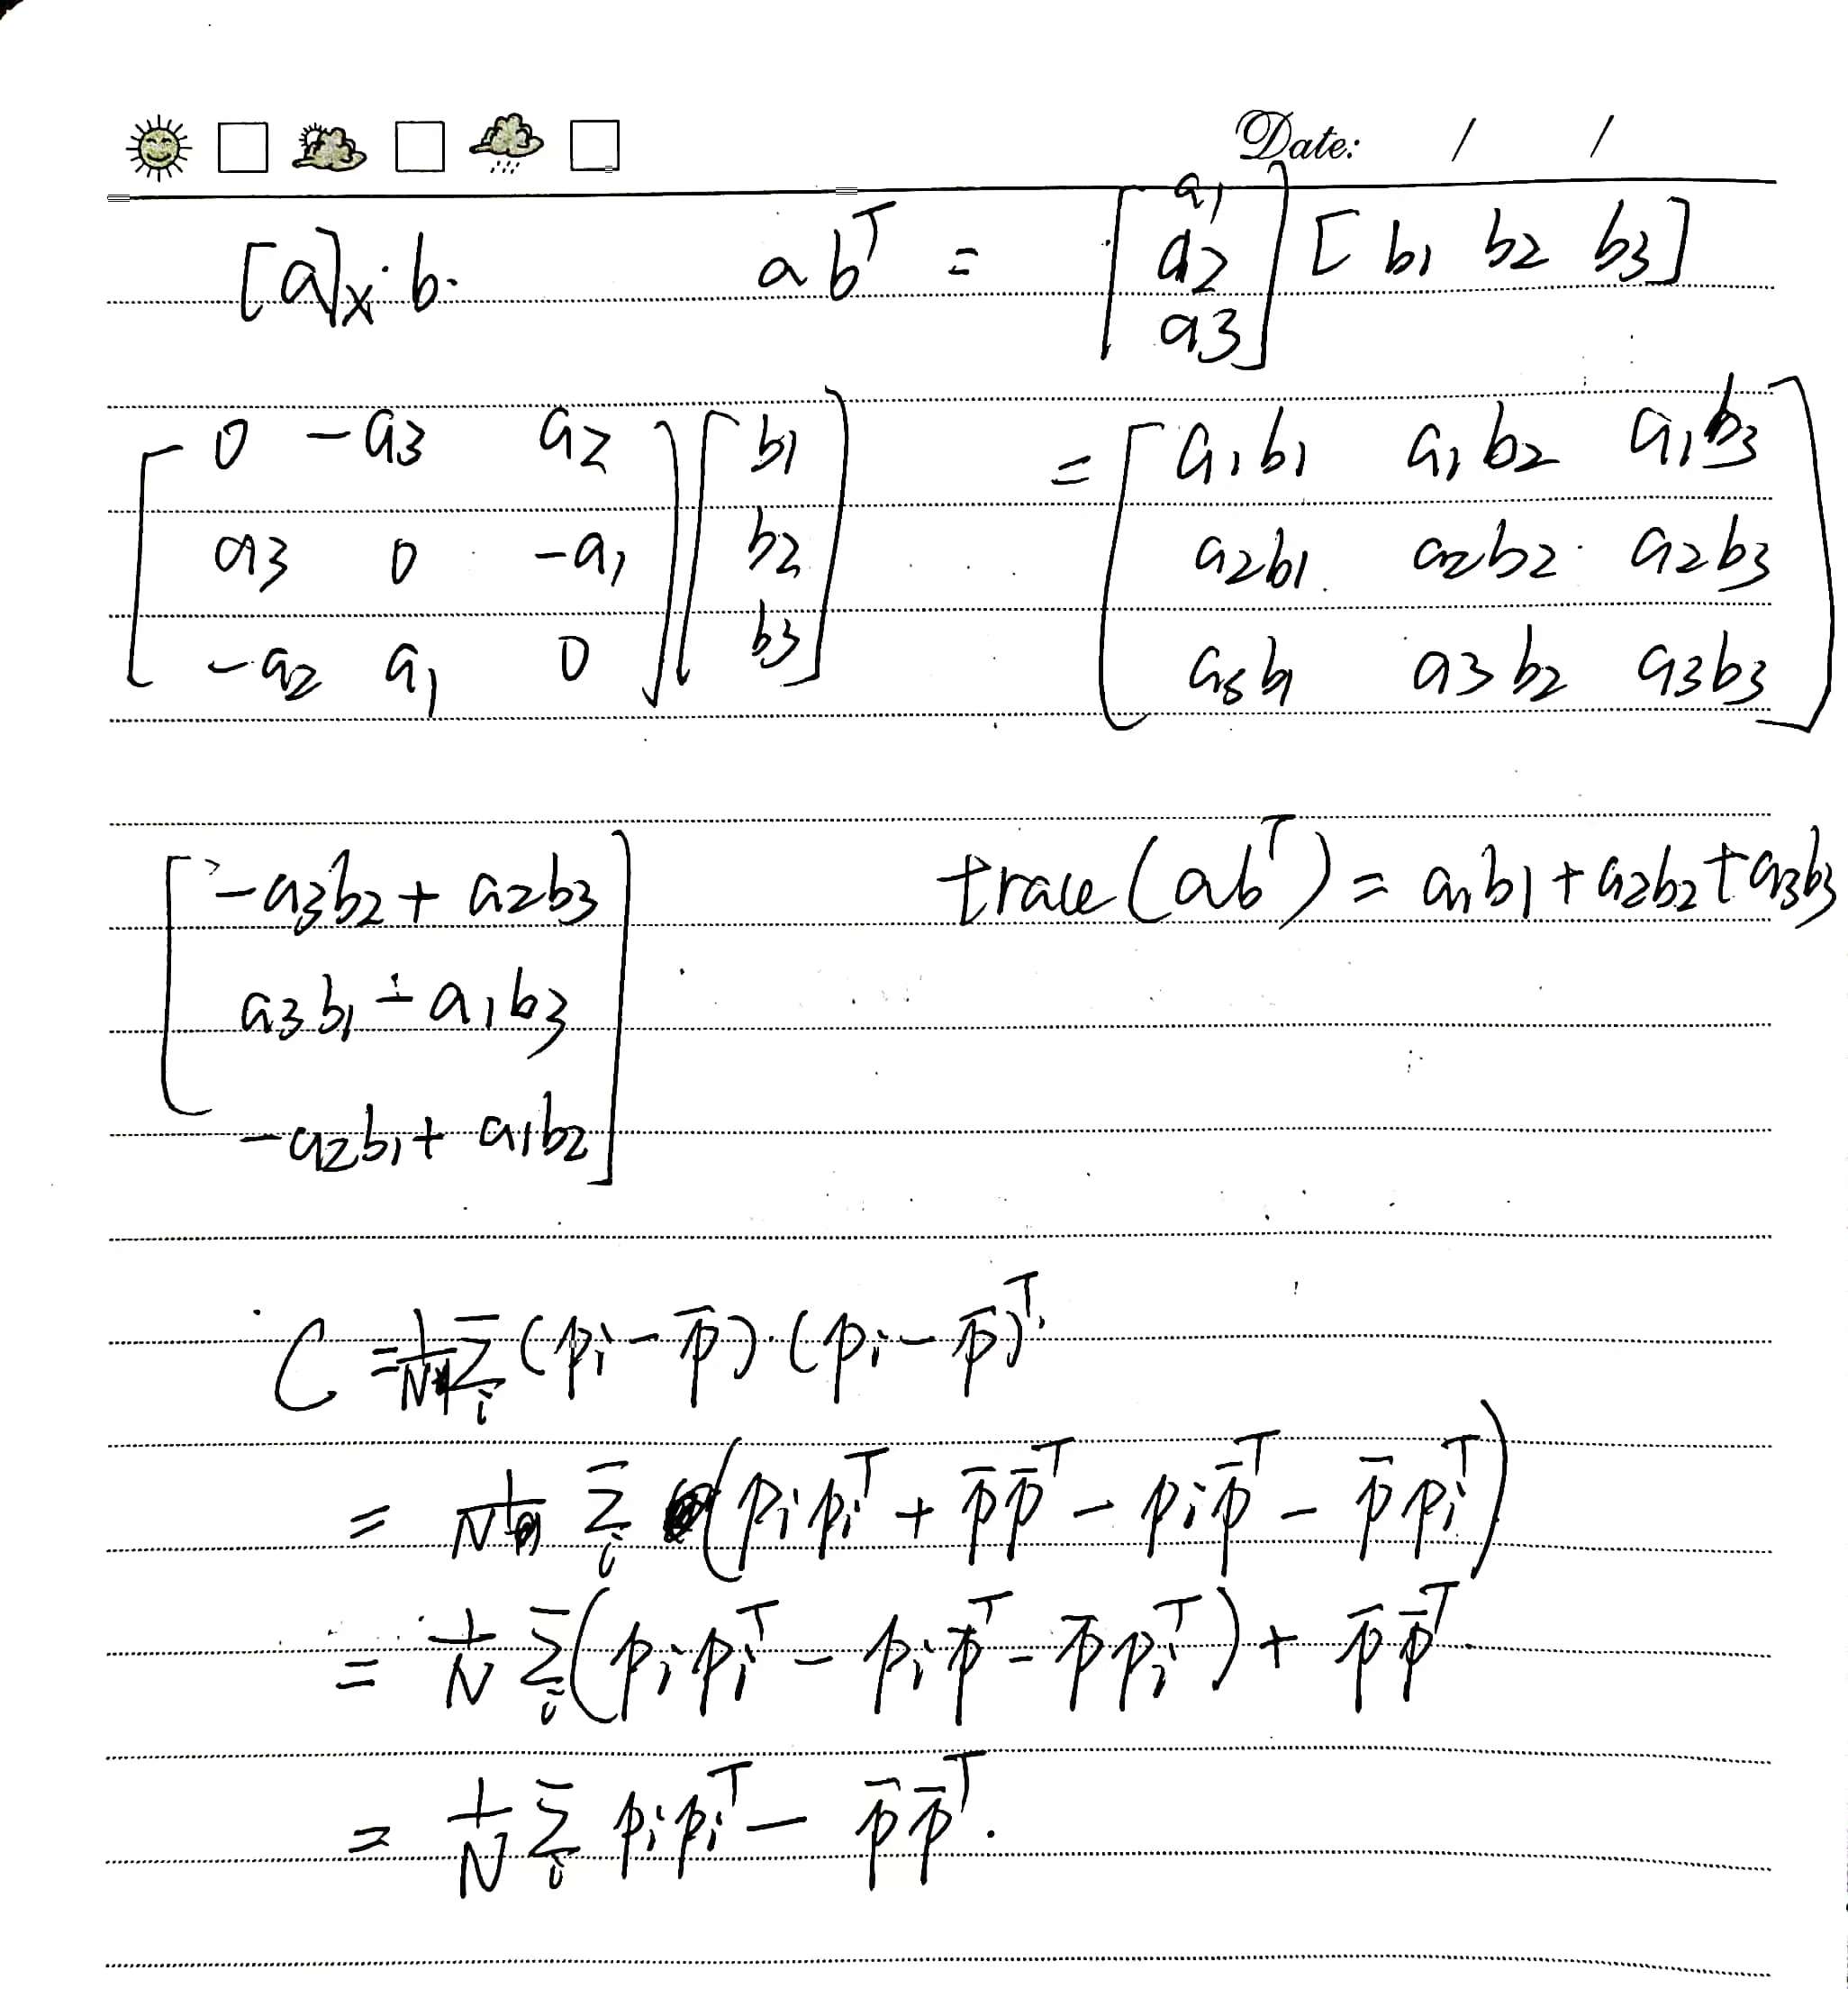 Date: / /
[a]ₓ · b.
abᵀ = [a1 a2 a3] [b1 b2 b3]
[0 -a3 a2
a3 0 -a1
-a2 a1 0] [b1 b2 b3]
= [a1b1 a1b2 a1b3
a2b1 a2b2 a2b3
a3b1 a3b2 a3b3]
[-a3b2 + a2b3
a3b1 - a1b3
-a2b1 + a1b2]
trace(abᵀ) = a1b1 + a2b2 + a3b3
C = 1/N Σᵢ (pᵢ - p̄) · (pᵢ - p̄)ᵀ
= 1/N Σᵢ (pᵢpᵢᵀ + p̄p̄ᵀ - pᵢp̄ᵀ - p̄pᵢᵀ)
= 1/N Σᵢ (pᵢpᵢᵀ - pᵢp̄ᵀ - p̄pᵢᵀ) + p̄p̄ᵀ.
= 1/N Σᵢ pᵢpᵢᵀ - p̄p̄ᵀ.